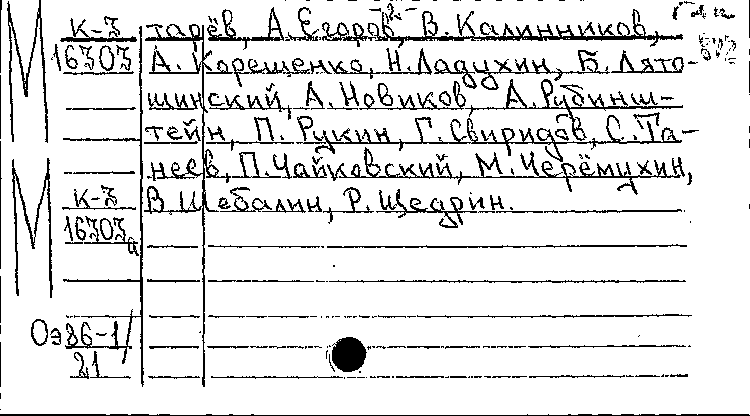 К-З тарёв, А. Егоров, В. Калинников,
16303 А. Корещенко, Н. Ладухин, Б. Лято-
шинский, А. Новиков, А. Рубинш-
тейн, П. Рукин, Г. Свиридов, С. Та-
неев, П. Чайковский, М. Черёмухин,
К-З В. Шебалин, Р. Щедрин.
16303а
Оэ86-1/
21
М
М